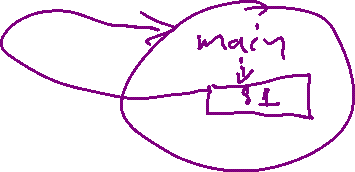 main
$1